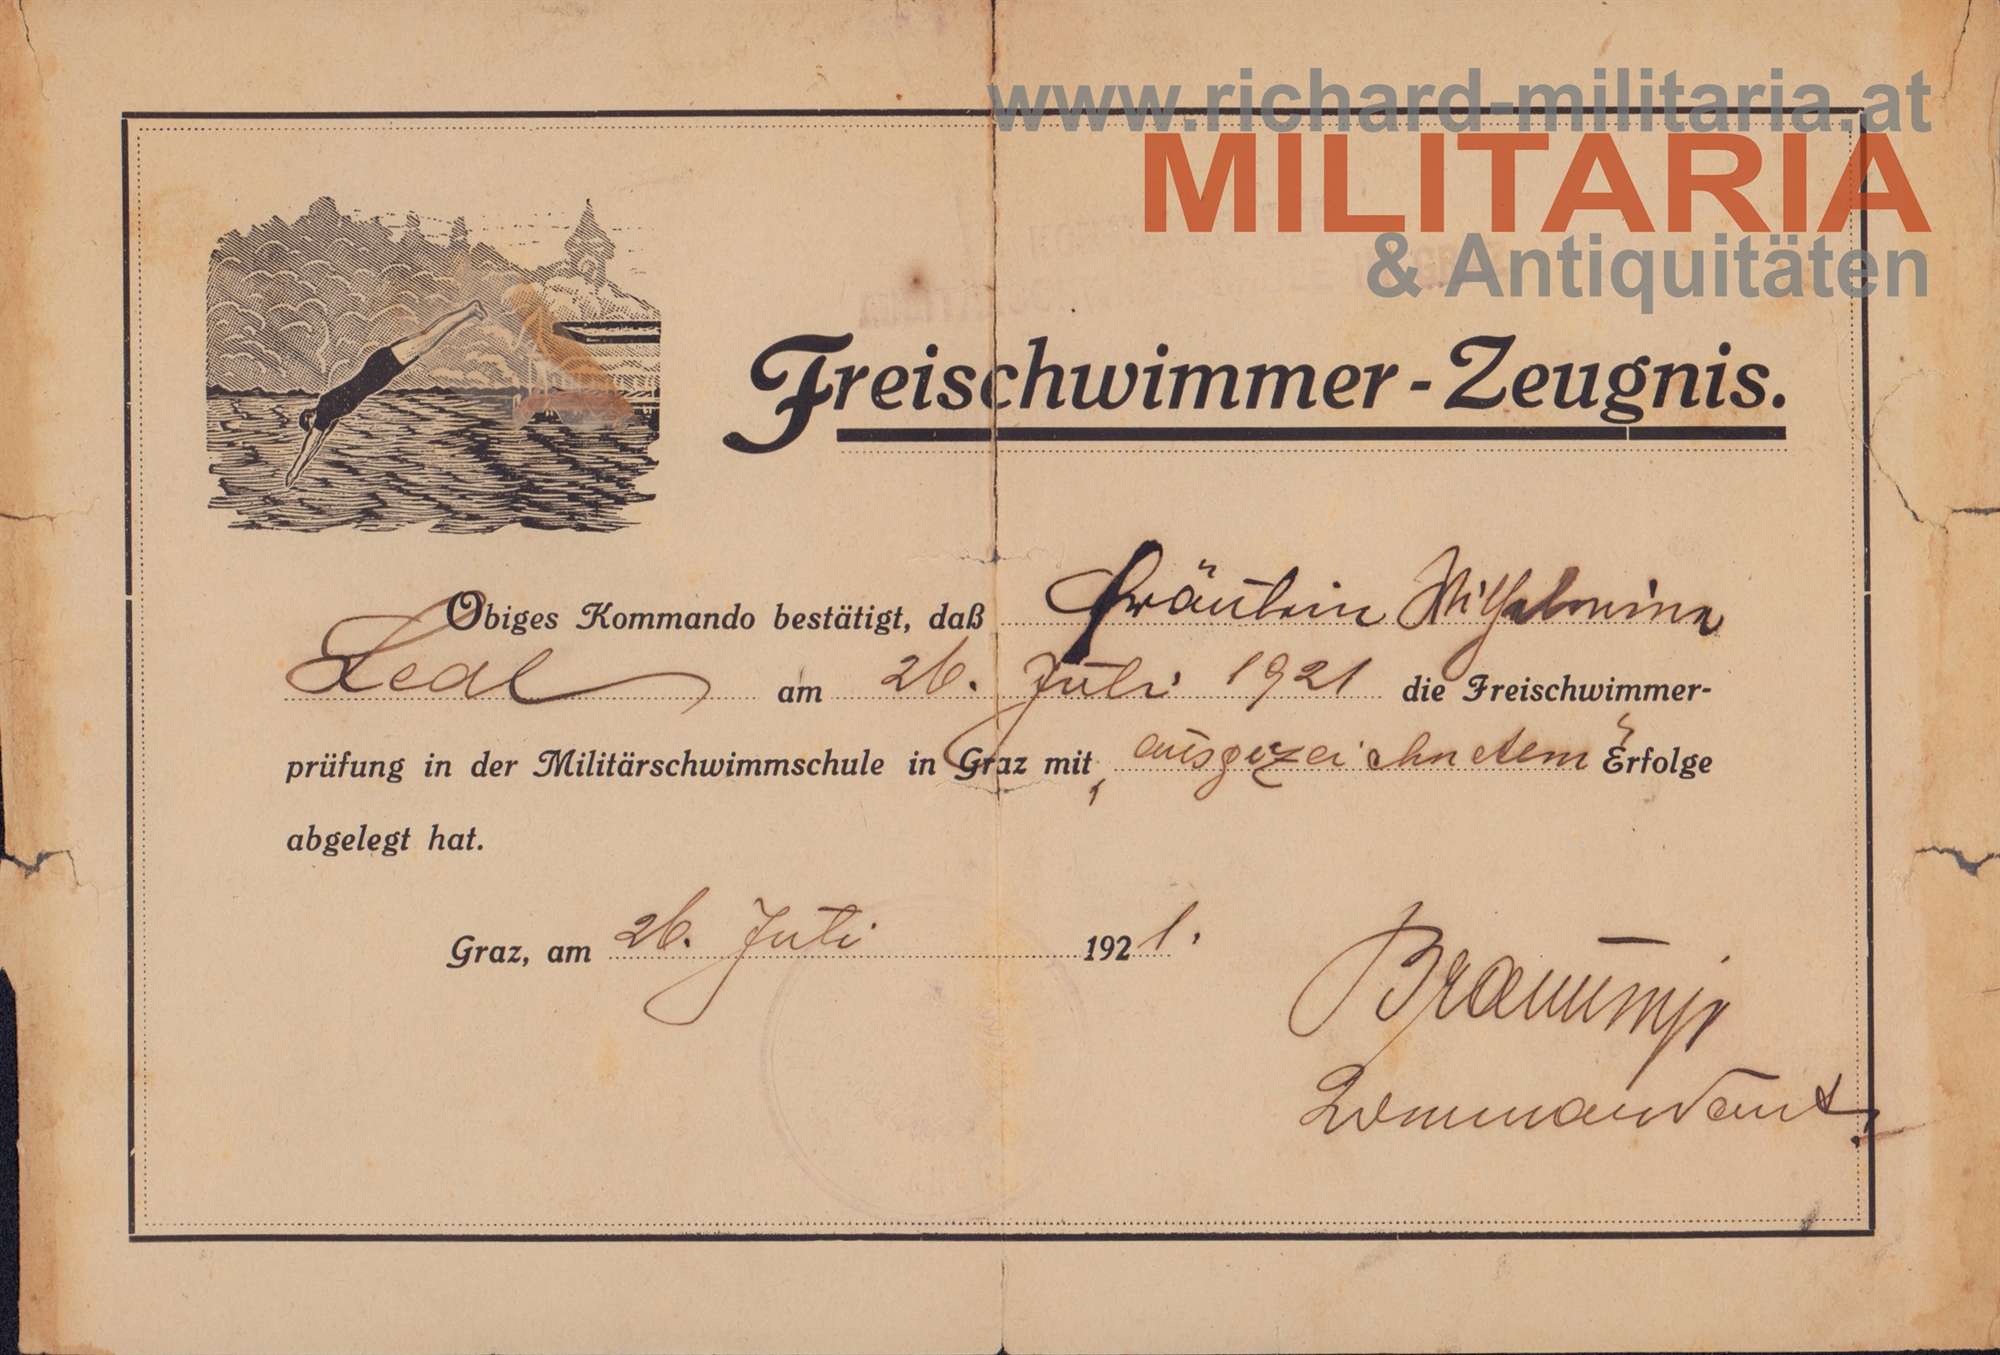 www.richard-militaria.at
MILITARIA
& Antiquitäten
Freischwimmer-Zeugnis.
Obiges Kommando bestätigt, daß Fräulein Wilhelmine
Ledl am 26. Juli 1921 die Freischwimmer-
prüfung in der Militärschwimmschule in Graz mit ausgezeichnetem Erfolge
abgelegt hat.
Graz, am 26. Juli 1921.
Kommandant